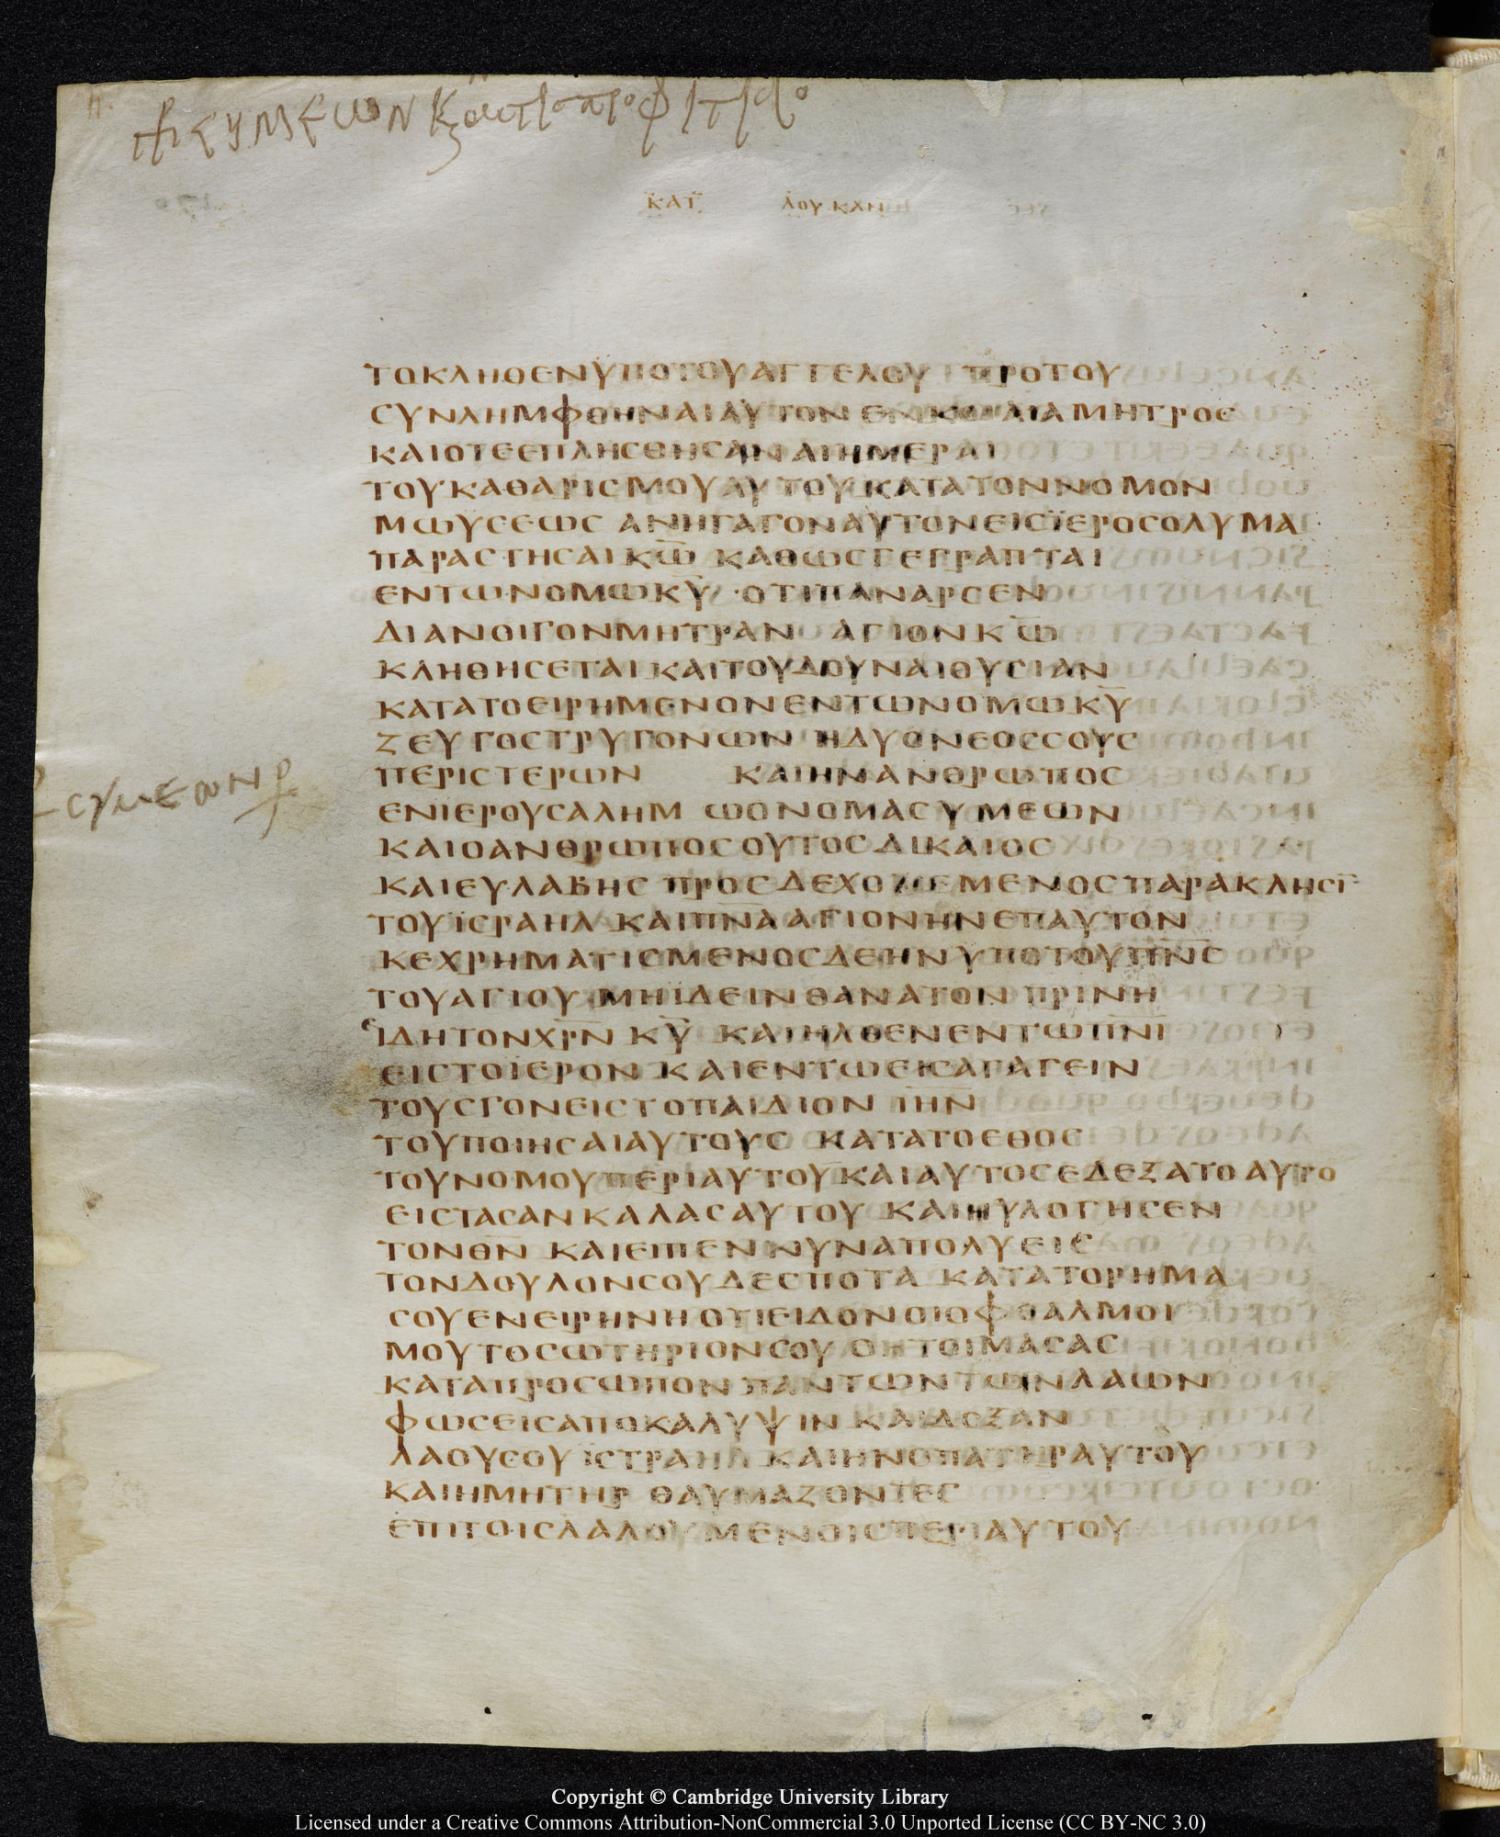 ΚΑΤ ΛΟΥΚΑΝ
ΤΟΚΛΗΘΕΝΥΠΟΤΟΥΑΓΓΕΛΟΥ ΠΡΟΤΟΥ
ΣΥΝΛΗΜΦΘΗΝΑΙΑΥΤΟΝ ΕΝΚΟΙΛΙΑΜΗΤΡΟΣ
ΚΑΙΟΤΕΕΠΛΗΣΘΗΣΑΝΑΙΗΜΕΡΑΙ
ΤΟΥΚΑΘΑΡΙΣΜΟΥΑΥΤΟΥΚΑΤΑΤΟΝΝΟΜΟΝ
ΜΩΥΣΕΩΣ ΑΝΗΓΑΓΟΝΑΥΤΟΝΕΙΣΪΕΡΟΣΟΛΥΜΑ
ΠΑΡΑΣΤΗΣΑΙΚΩ̅ ΚΑΘΩΣΓΕΓΡΑΠΤΑΙ
ΕΝΤΩΝΟΜΩΚΥ̅ ·ΟΤΙΠΑΝΑΡΣΕΝ
ΔΙΑΝΟΙΓΟΝΜΗΤΡΑΝ ΑΓΙΟΝΚΩ̅
ΚΛΗΘΗΣΕΤΑΙΚΑΙΤΟΥΔΟΥΝΑΙΘΥΣΙΑΝ
ΚΑΤΑΤΟΕΙΡΗΜΕΝΟΝΕΝΤΩΝΟΜΩΚΥ̅
ΖΕΥΓΟΣΤΡΥΓΟΝΩΝ ΗΔΥΟΝΕΟΣΣΟΥΣ
ΠΕΡΙΣΤΕΡΩΝ ΚΑΙΗΝΑΝΘΡΩΠΟΣ
ΕΝΙΕΡΟΥΣΑΛΗΜ ΩΟΝΟΜΑΣΥΜΕΩΝ
ΚΑΙΟΑΝΘΡΩΠΟΣΟΥΤΟΣΔΙΚΑΙΟΣ
ΚΑΙΕΥΛΑΒΗΣ ΠΡΟΣΔΕΧΟΜΕΝΟΣΠΑΡΑΚΛΗΣΙ̅
ΤΟΥΪΣΡΑΗΛ ΚΑΙΠΝ̅ΑΑΓΙΟΝΗΝΕΠΑΥΤΟΝ
ΚΕΧΡΗΜΑΤΙΣΜΕΝΟΣΔΕΗΝΥΠΟΤΟΥΠΝ̅Σ
ΤΟΥΑΓΙΟΥ ΜΗΙΔΕΙΝΘΑΝΑΤΟΝ ΠΡΙΝΗ
ΙΔΗΤΟΝΧΡ̅Ν ΚΥ̅ ΚΑΙΗΛΘΕΝΕΝΤΩΠΝ̅Ι
ΕΙΣΤΟΙΕΡΟΝ ΚΑΙΕΝΤΩΕΙΣΑΓΑΓΕΙΝ
ΤΟΥΣΓΟΝΕΙΣΤΟΠΑΙΔΙΟΝ ΙΗ̅Ν
ΤΟΥΠΟΙΗΣΑΙΑΥΤΟΥΣ ΚΑΤΑΤΟΕΘΟΣ
ΤΟΥΝΟΜΟΥΠΕΡΙΑΥΤΟΥΚΑΙΑΥΤΟΣΕΔΕΞΑΤΟΑΥΤΟ
ΕΙΣΤΑΣΑΝΚΑΛΑΣΑΥΤΟΥ ΚΑΙΗΥΛΟΓΗΣΕΝ
ΤΟΝΘΝ̅ ΚΑΙΕΙΠΕΝΝΥΝΑΠΟΛΥΕΙΣ
ΤΟΝΔΟΥΛΟΝΣΟΥΔΕΣΠΟΤΑ ΚΑΤΑΤΟΡΗΜΑ
ΣΟΥΕΝΕΙΡΗΝΗΟΤΙΕΙΔΟΝΟΙΟΦΘΑΛΜΟΙ
ΜΟΥΤΟΣΩΤΗΡΙΟΝΣΟΥ ΟΗΤΟΙΜΑΣΑΣ
ΚΑΤΑΠΡΟΣΩΠΟΝΠΑΝΤΩΝΤΩΝΛΑΩΝ
ΦΩΣΕΙΣΑΠΟΚΑΛΥΨΙΝ ΚΑΙΔΟΞΑΝ
ΛΑΟΥΣΟΥΪΣΤΡΑΗΛ ΚΑΙΗΝΟΠΑΤΗΡΑΥΤΟΥ
ΚΑΙΗΜΗΤΗΡ ΘΑΥΜΑΖΟΝΤΕΣ
ΕΠΙΤΟΙΣΛΑΛΟΥΜΕΝΟΙΣΠΕΡΙΑΥΤΟΥ
Copyright © Cambridge University Library
Licensed under a Creative Commons Attribution-NonCommercial 3.0 Unported License (CC BY-NC 3.0)